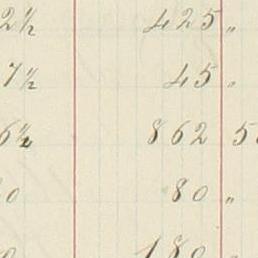 2½ 425 "
7½ 45 "
6½ 862 5
0 80 "
180